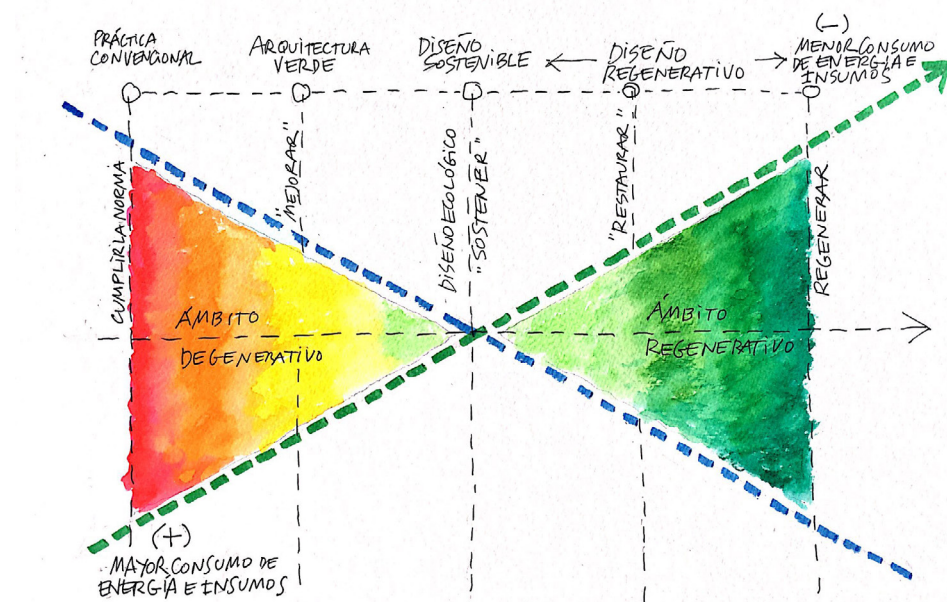 PRÁCTICA
CONVENCIONAL
ARQUITECTURA
VERDE
DISEÑO
SOSTENIBLE
DISEÑO
REGENERATIVO
(-)
MENOR CONSUMO
DE ENERGÍA E
INSUMOS
CUMPLIR LA NORMA
"MEJORAR"
DISEÑO ECOLÓGICO
"SOSTENER"
"RESTAURAR"
REGENERAR
ÁMBITO
DEGENERATIVO
ÁMBITO
REGENERATIVO
(+)
MAYOR CONSUMO DE
ENERGÍA E INSUMOS